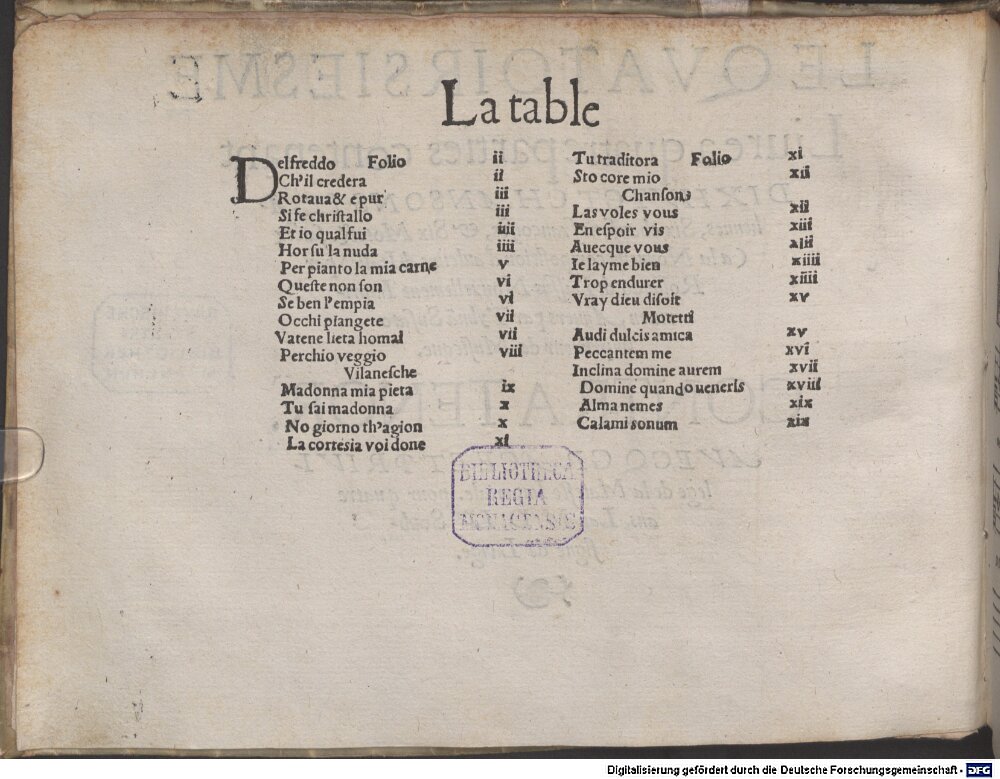 La table
Delfreddo Folio ii
Ch'il credera ii
Rotaua & epur iii
Si fe christallo iii
Et io qual fui iiii
Hor su la nuda iiii
Per pianto la mia carne v
Queste non son vi
Se ben l'empia vi
Occhi piangete vii
Vatene lieta homai vii
Perchio veggio viii
Vilanesche
Madonna mia pieta ix
Tu sai madonna x
No giorno th'agion x
La cortesia voi done xi
Tu traditora Folio xi
Sto core mio xii
Chansons
Las voles vous xii
En espoir vis xiii
Auecque vous xiii
Ie layme bien xiiii
Trop endurer xiiii
Vray dieu disoit xv
Motetti
Audi dulcis amica xv
Peccantem me xvi
Inclina domine aurem xvii
Domine quando ueneris xviii
Alma nemes xix
Calami sonum xix
BIBLIOTHECA
REGIA
MONACENSIS
Digitalisierung gefördert durch die Deutsche Forschungsgemeinschaft - DFG